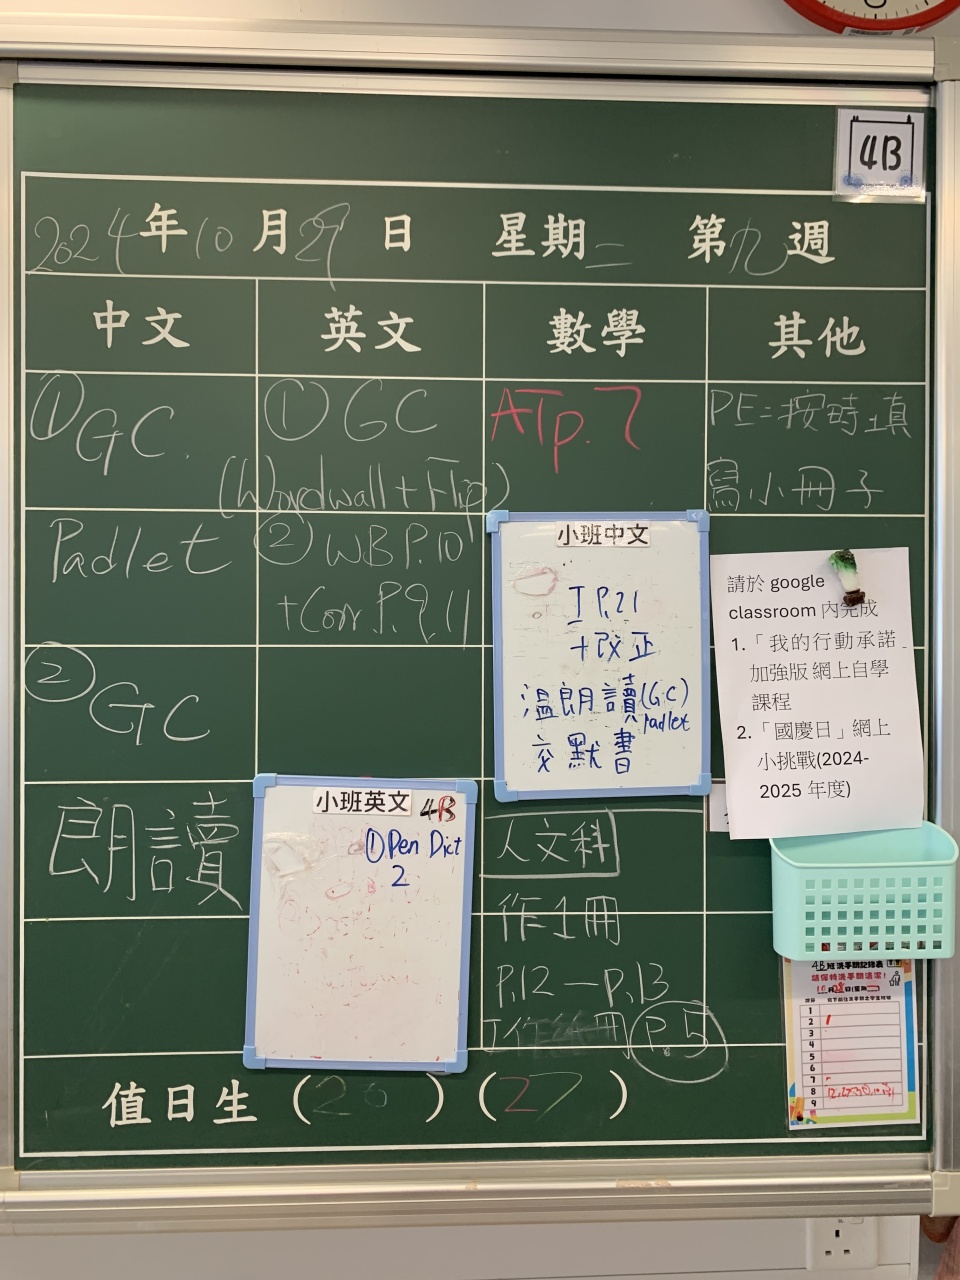 4B
2024年10月29日 星期二 第九週
中文 英文 數學 其他
①GC
Padlet
②
GC
朗讀
①GC
(Wordwall + Flip)
②WB P.10
+Corr. P. 9, 11
小班英文 4B
①Pen Dict
2
ATp.7
小班中文
工 P.21
+改正
溫朗讀(GC)
padlet
交默書
人文科
作1冊
P.12 — P.13
P.5
PE=按時填
寫小冊子
請於 google
classroom 內完成
1.「我的行動承諾
加強版 網上自學
課程
2.「國慶日」網上
小挑戰(2024-
2025 年度)
4B班洗手間記錄表
請保持洗手間清潔!
10月28日(星期
1
2
3
4
5
6
7
8
9
值日生 (20) (27)